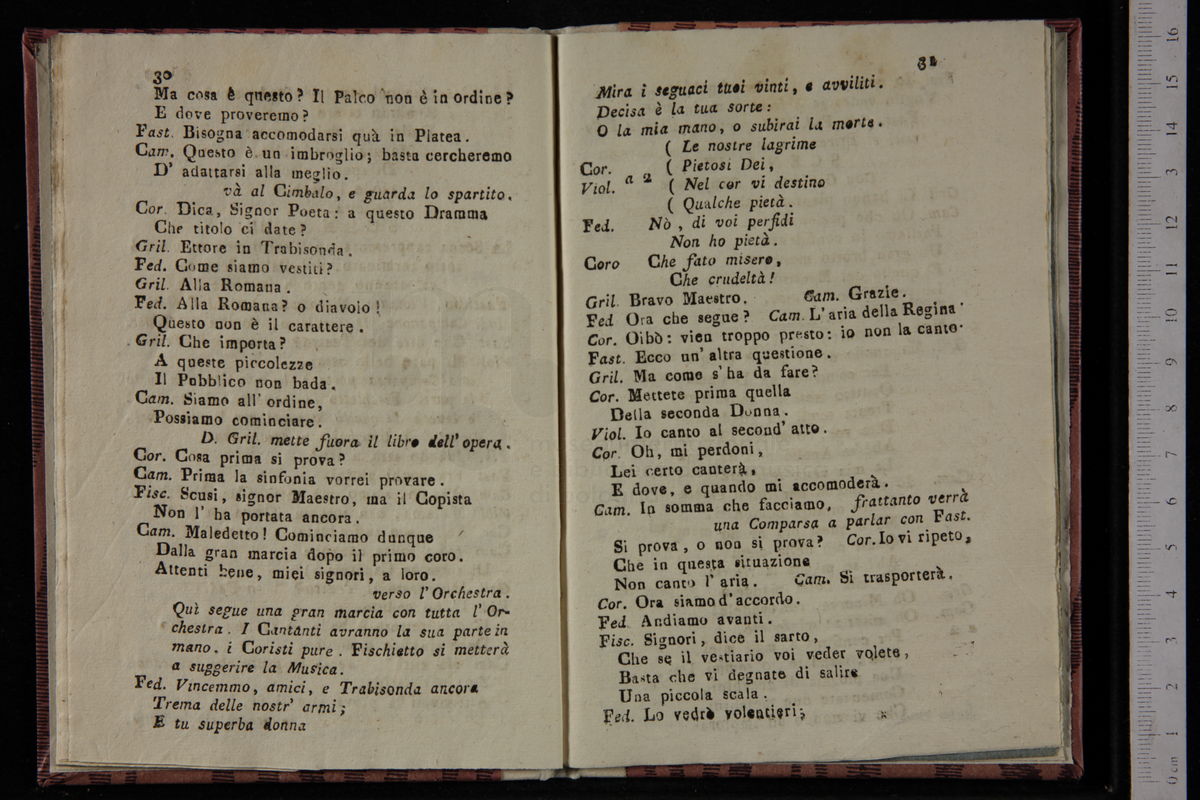 30
Ma cosa è questo? Il Palco non è in ordine?
E dove proveremo?
Fast. Bisogna accomodarsi quà in Platea.
Cam. Questo è un imbroglio; basta cercheremo
D' adattarsi alla meglio.
và al Cimbalo, e guarda lo spartito.
Cor. Dica, Signor Poeta: a questo Dramma
Che titolo ci date?
Gril. Ettore in Trabisonda.
Fed. Come siamo vestiti?
Gril. Alla Romana.
Fed. Alla Romana? o diavolo!
Questo non è il carattere.
Gril. Che importa?
A queste piccolezze
Il Pubblico non bada.
Cam. Siamo all' ordine,
Possiamo cominciare.
D. Gril. mette fuora il libro dell' opera.
Cor. Cosa prima si prova?
Cam. Prima la sinfonia vorrei provare.
Fisc. Scusi, signor Maestro, ma il Copista
Non l' ha portata ancora.
Cam. Maledetto! Cominciamo dunque
Dalla gran marcia dopo il primo coro.
Attenti bene, miei signori, a loro.
verso l' Orchestra.
Quì segue una gran marcia con tutta l' Or-
chestra. I Cantanti avranno la sua parte in
mano. i Coristi pure. Fischietto si metterà
a suggerire la Musica.
Fed. Vincemmo, amici, e Trabisonda ancora
Trema delle nostr' armi;
E tu superba donna
31
Mira i seguaci tuoi vinti, e avviliti.
Decisa è la tua sorte:
O la mia mano, o subirai la morte.
( Le nostre lagrime
Cor. ( Pietosi Dei,
Viol. a 2 ( Nel cor vi destino
( Qualche pietà.
Fed. Nò, di voi perfidi
Non ho pietà.
Coro Che fato misero,
Che crudeltà!
Gril. Bravo Maestro. Cam. Grazie.
Fed Ora che segue? Cam. L' aria della Regina.
Cor. Oibò: vien troppo presto: io non la canto.
Fast. Ecco un' altra questione.
Gril. Ma come s' ha da fare?
Cor. Mettete prima quella
Della seconda Donna.
Viol. Io canto al second' atto.
Cor. Oh, mi perdoni,
Lei certo canterà,
E dove, e quando mi accomoderà.
Cam. In somma che facciamo, frattanto verrà
una Comparsa a parlar con Fast.
Si prova, o non si prova? Cor. Io vi ripeto,
Che in questa situazione
Non canto l' aria. Cam. Si trasporterà.
Cor. Ora siamo d' accordo.
Fed. Andiamo avanti.
Fisc. Signori, dice il sarto,
Che se il vestiario voi veder volete,
Basta che vi degnate di salire
Una piccola scala.
Fed. Lo vedrò volentieri;
0 cm 1 2 3 4 5 6 7 8 9 10 11 12 13 14 15 16